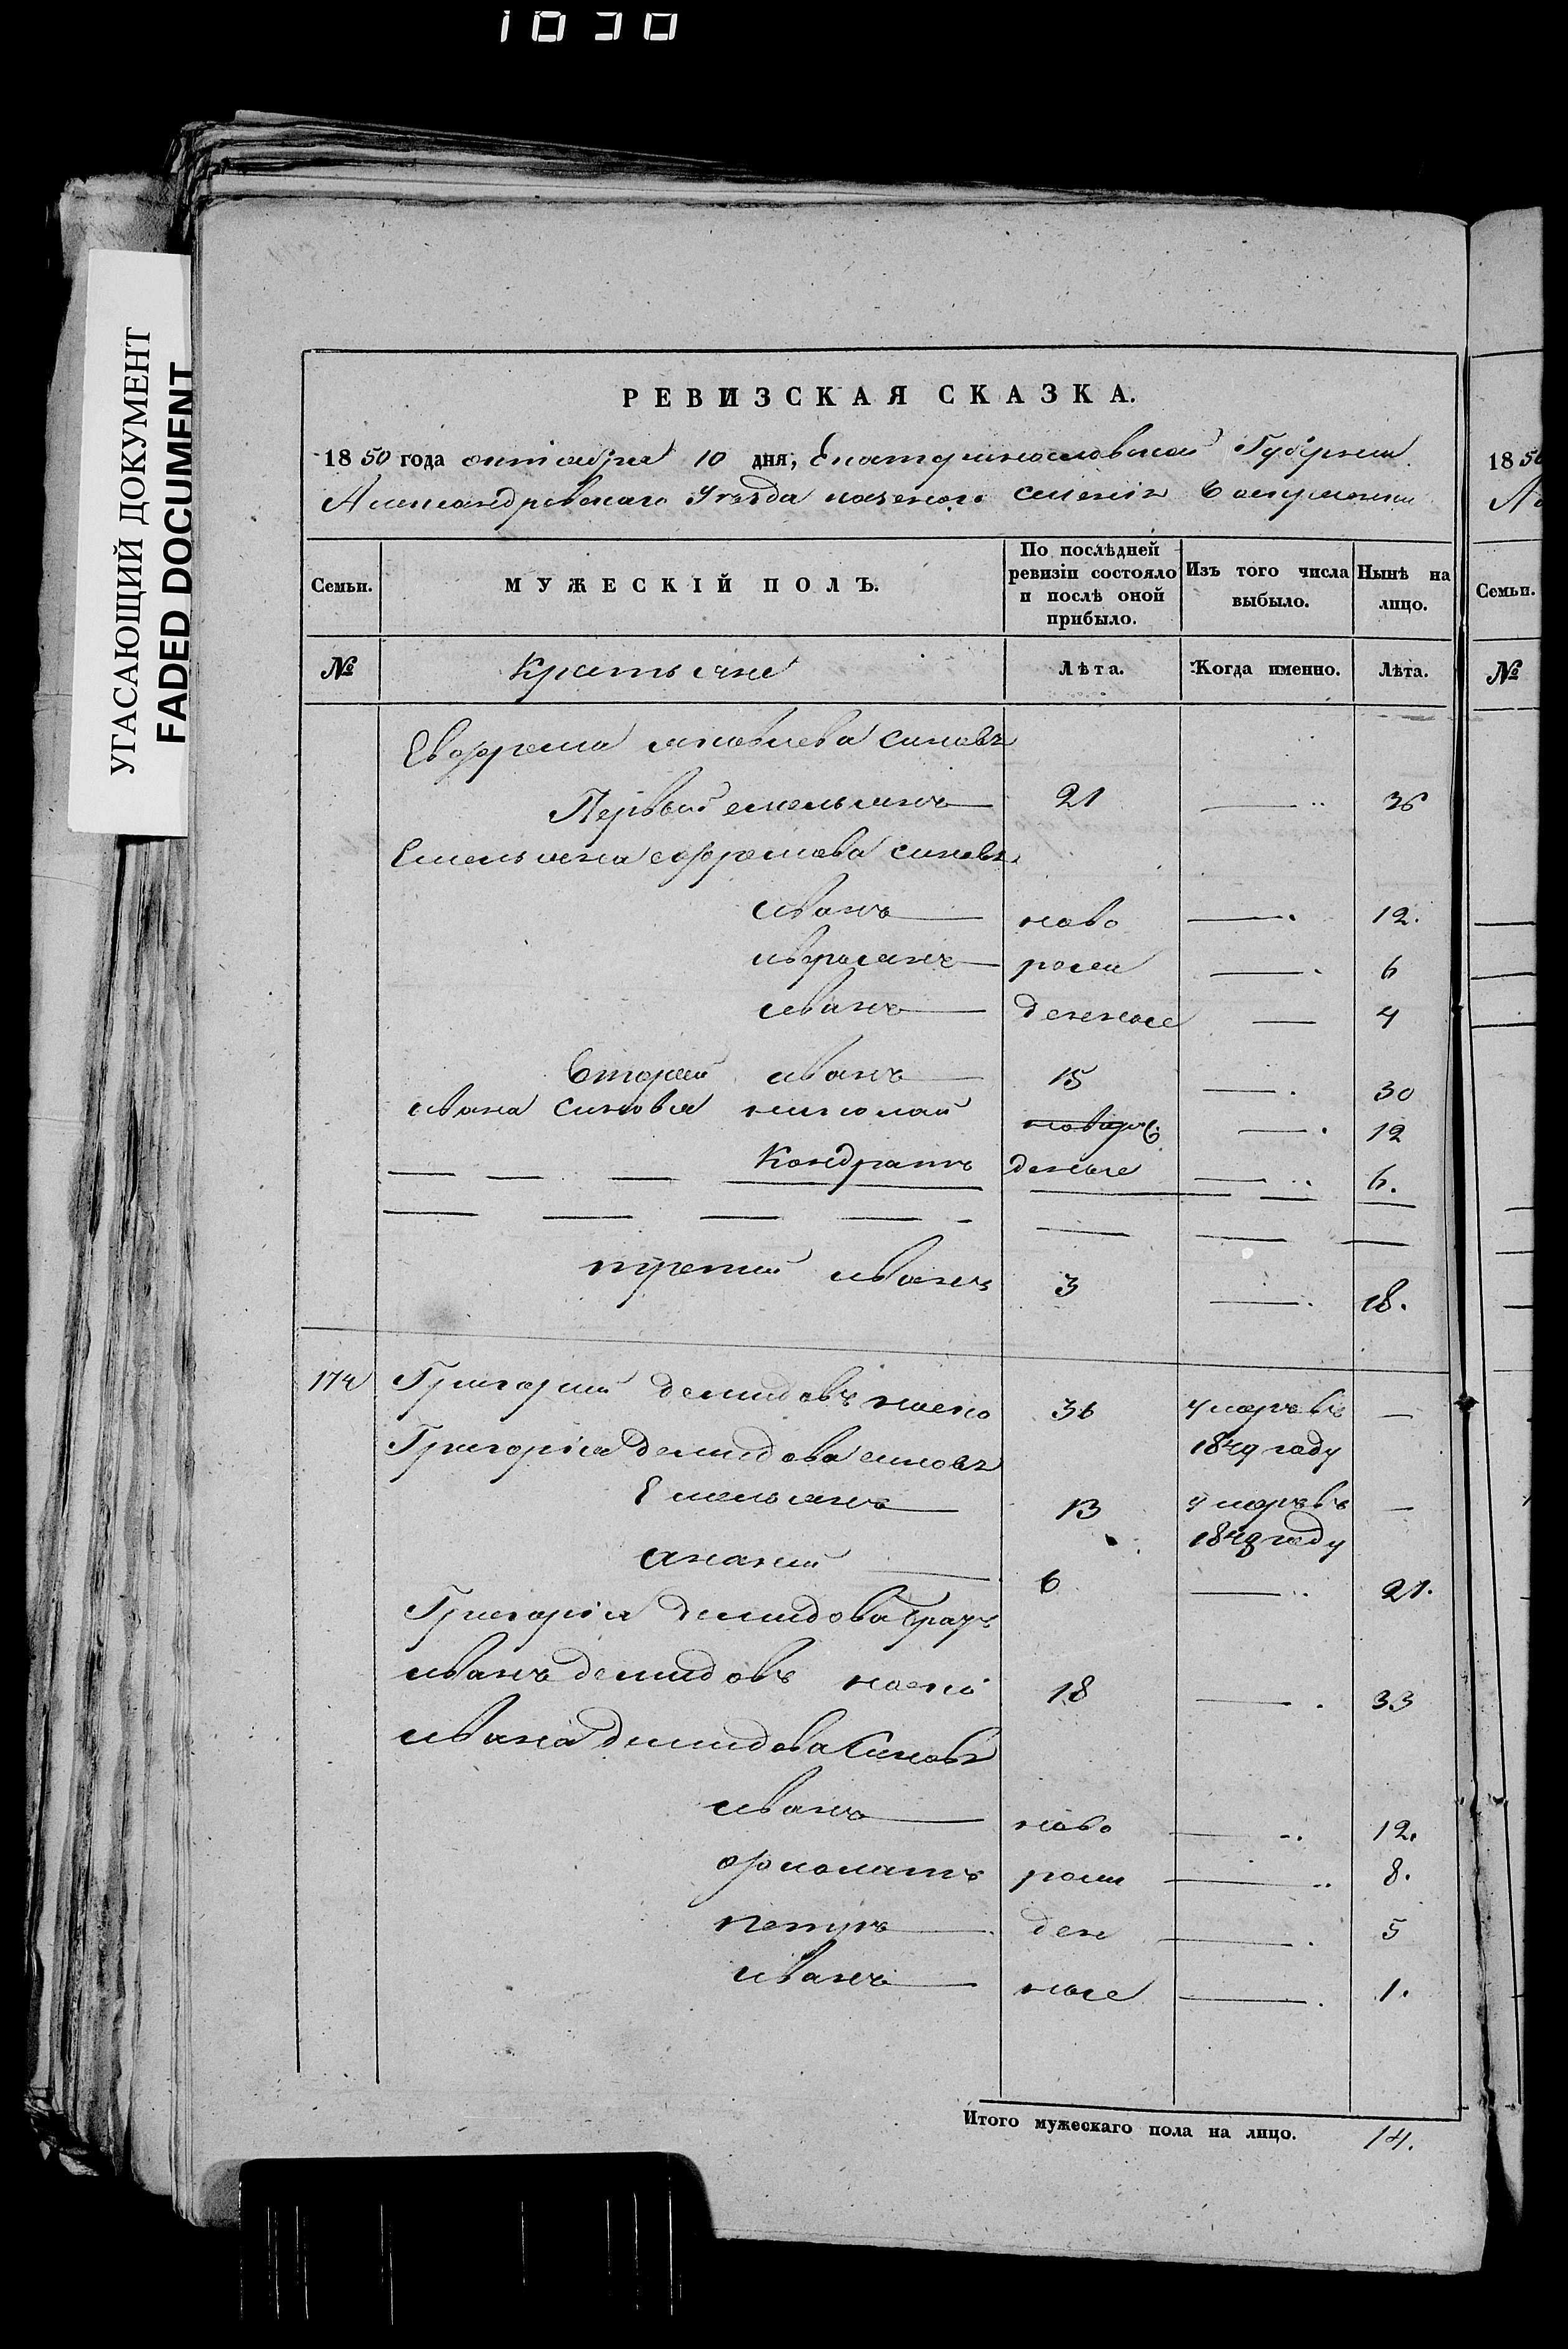 1030
УГАСАЮЩИЙ ДОКУМЕНТ
FADED DOCUMENT
РЕВИЗСКАЯ СКАЗКА.
1850 года октября 10 дня, Екатеринославской Губернии
Александровскаго Уезда казеного селения
Семьи. МУЖЕСКІЙ ПОЛЪ. По послѣдней ревизіи состояло и послѣ оной прибыло. Изъ того числа выбыло. Нынѣ на лицо.
№ Крестьяне Лѣта. Когда именно. Лѣта.
Ефрема яковлева синовъ
Первый емельянъ 21 36
Емельяна ефремова синовъ
иванъ ново 12.
рожен 6
иванъ денные 4
Вторий иванъ 15 30
ивана синовья николай 12
Кондратъ денные 6.
третий иванъ 3 18.
174 Григорий демидовъ 36 умеръ въ —
Григорія Демидова синовъ 1849 году
Емельянъ 13 умеръ въ —
184 году
ананий 6 21.
Григорія демидова братъ
иванъ демидовъ 18 33
ивана демидова Синовъ
иванъ ново 12.
рож 8.
петръ ден 5
иванъ ные 1.
Итого мужескаго пола на лицо. 14.
1850
Семьи.
№